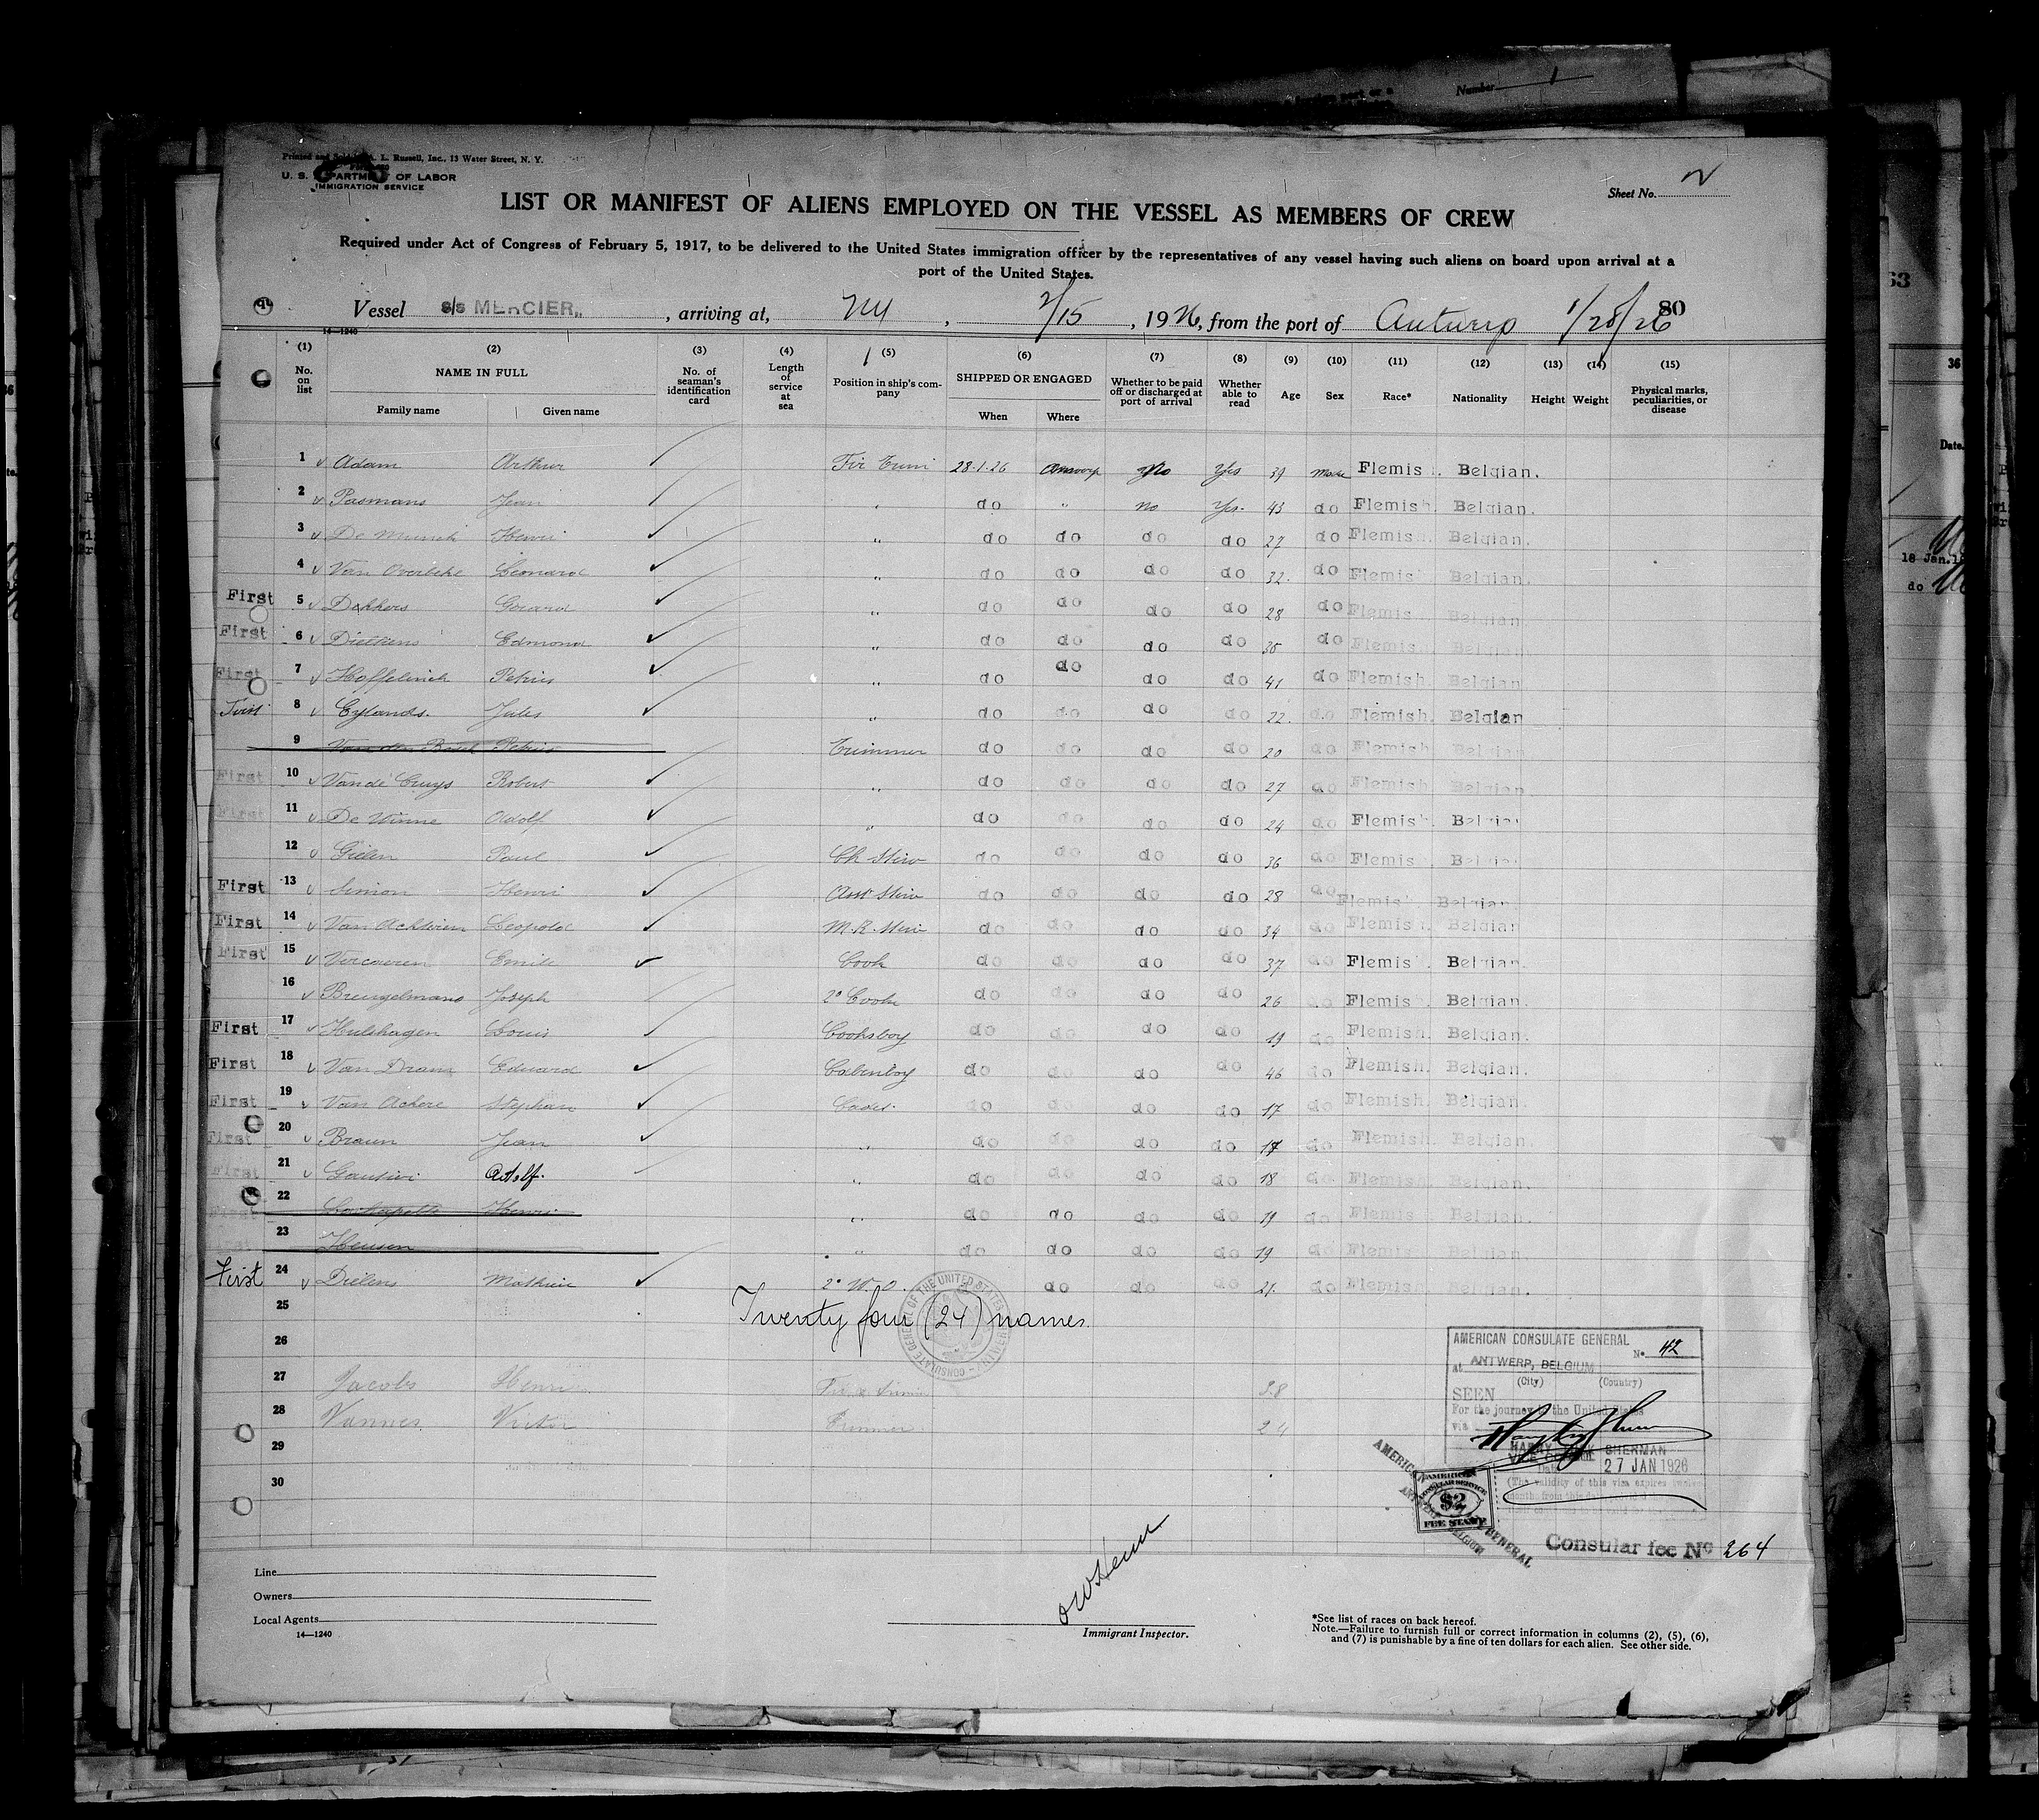 Number 1
Printed and Sold by A. L. Russell, Inc., 13 Water Street, N. Y.
U. S. DEPARTMENT OF LABOR
IMMIGRATION SERVICE
Sheet No. 2
LIST OR MANIFEST OF ALIENS EMPLOYED ON THE VESSEL AS MEMBERS OF CREW
Required under Act of Congress of February 5, 1917, to be delivered to the United States immigration officer by the representatives of any vessel having such aliens on board upon arrival at a
port of the United States.
Vessel s/s MERCIER, , arriving at, NY , 2/15 , 1926, from the port of Antwerp 1/28/26 80
14—1240
(1) (2) (3) (4) (5) (6) (7) (8) (9) (10) (11) (12) (13) (14) (15)
No. on list NAME IN FULL Family name Given name No. of seaman's identification card Length of service at sea Position in ship's company SHIPPED OR ENGAGED When Where Whether to be paid off or discharged at port of arrival Whether able to read Age Sex Race* Nationality Height Weight Physical marks, peculiarities, or disease
1 Adam Arthur 28-1-26 Antwerp No Yes 39 Male Flemish. Belgian.
2 Pasmans Jean " do " No Yes. 43 do Flemish. Belgian.
3 De Munck Henri " do do do do 27 do Flemish. Belgian.
4 Van Overbeke Leonard " do do do do 32. do Flemish. Belgian.
First 5 Dekkers Gerard " do do do do 28 do Flemish. Belgian.
First 6 Edmond " do do do do do Flemish. Belgian.
First 7 Petrus " do do do do 41 do Flemish. Belgian
First 8 Eylands. Jules " do do do do 22. do Flemish. Belgian
9 Petrus Trimmer do do do do 20 do Flemish. Belgian
First 10 Van de Cruys Robert " do do do do 27 do Flemish. Belgian.
First 11 De Winne Adolf " do do do do 24 do Flemish. Belgian
12 Gielen Paul Ch Stew do do do do 36 do Flemish. Belgian
First 13 Simon Henri Asst Stew do do do do 28 do Flemish. Belgian.
First 14 Leopold M.R. Stew do do do do 34 do Flemish. Belgian
First 15 Vercoeren Emile Cook do do do do 37 do Flemish. Belgian.
16 Breugelmans Joseph 2° Cook do do do do 26 do Flemish. Belgian.
First 17 Hulshagen Louis Cooksboy do do do do 19 do Flemish. Belgian.
First 18 Van Dram Eduard Cabinboy do do do do 46 do Flemish. Belgian.
First 19 Van Ackere Stephan Cadet. do do do do 17 do Flemish. Belgian.
First 20 Braun Jean " do do do do do Flemish. Belgian.
First 21 Adolf. " do do do do 18 do Flemish. Belgian.
First 22 Henri " do do do do 19 do Flemish. Belgian.
First 23 Heusen " do do do do 19 do Flemish. Belgian.
First 24 Dielens Mathieu 2° W.O. do do do 21. do Flemish. Belgian.
25 Twenty four (24) names.
26
27 Jacobs Henri 38
28 Vannes Victor Trimmer 24
29
30
CONSULATE GENERAL OF THE UNITED STATES
AMERICAN CONSULATE GENERAL
No. 42
at ANTWERP, BELGIUM
(City) (Country)
SEEN
For the journey to the United States
via
SHERMAN
VICE CONSUL
Date 27 JAN 1926
AMERICAN
CONSULAR SERVICE
$2
FEE STAMP
AMERICAN CONSULATE GENERAL
ANTWERP BELGIUM
Consular fee No 264
Line
Owners
Local Agents
14—1240
Immigrant Inspector.
*See list of races on back hereof.
Note.—Failure to furnish full or correct information in columns (2), (5), (6),
and (7) is punishable by a fine of ten dollars for each alien. See other side.
63
36
Date.
18 Jan.
do